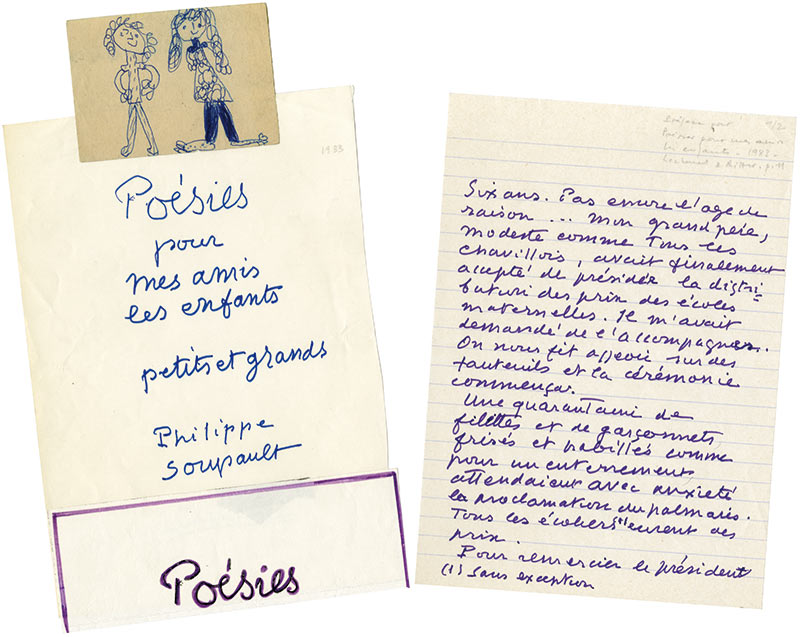 1983
Poésies
pour
mes amis
les enfants
petits et grands
Philippe
Soupault
Poésies
Préface pour
Poésies pour mes amis
les enfants - 1983 -
Six ans. Pas encore l'age de
raison ... mon grand père,
modeste comme tous les
chavillois, avait finalement
accepté de présider la distri-
bution des prix des écoles
maternelles. Il m'avait
demandé de l'accompagner.
On nous fit asseoir sur des
fauteuils et la cérémonie
commença.
Une quarantaine de
fillettes et de garçonnets
frisés et habillés comme
pour un enterrement,
attendaient avec anxiété
la proclamation du palmarès.
Tous les écoliers (1) eurent des
prix.
Pour remercier le président
(1) Sans exception